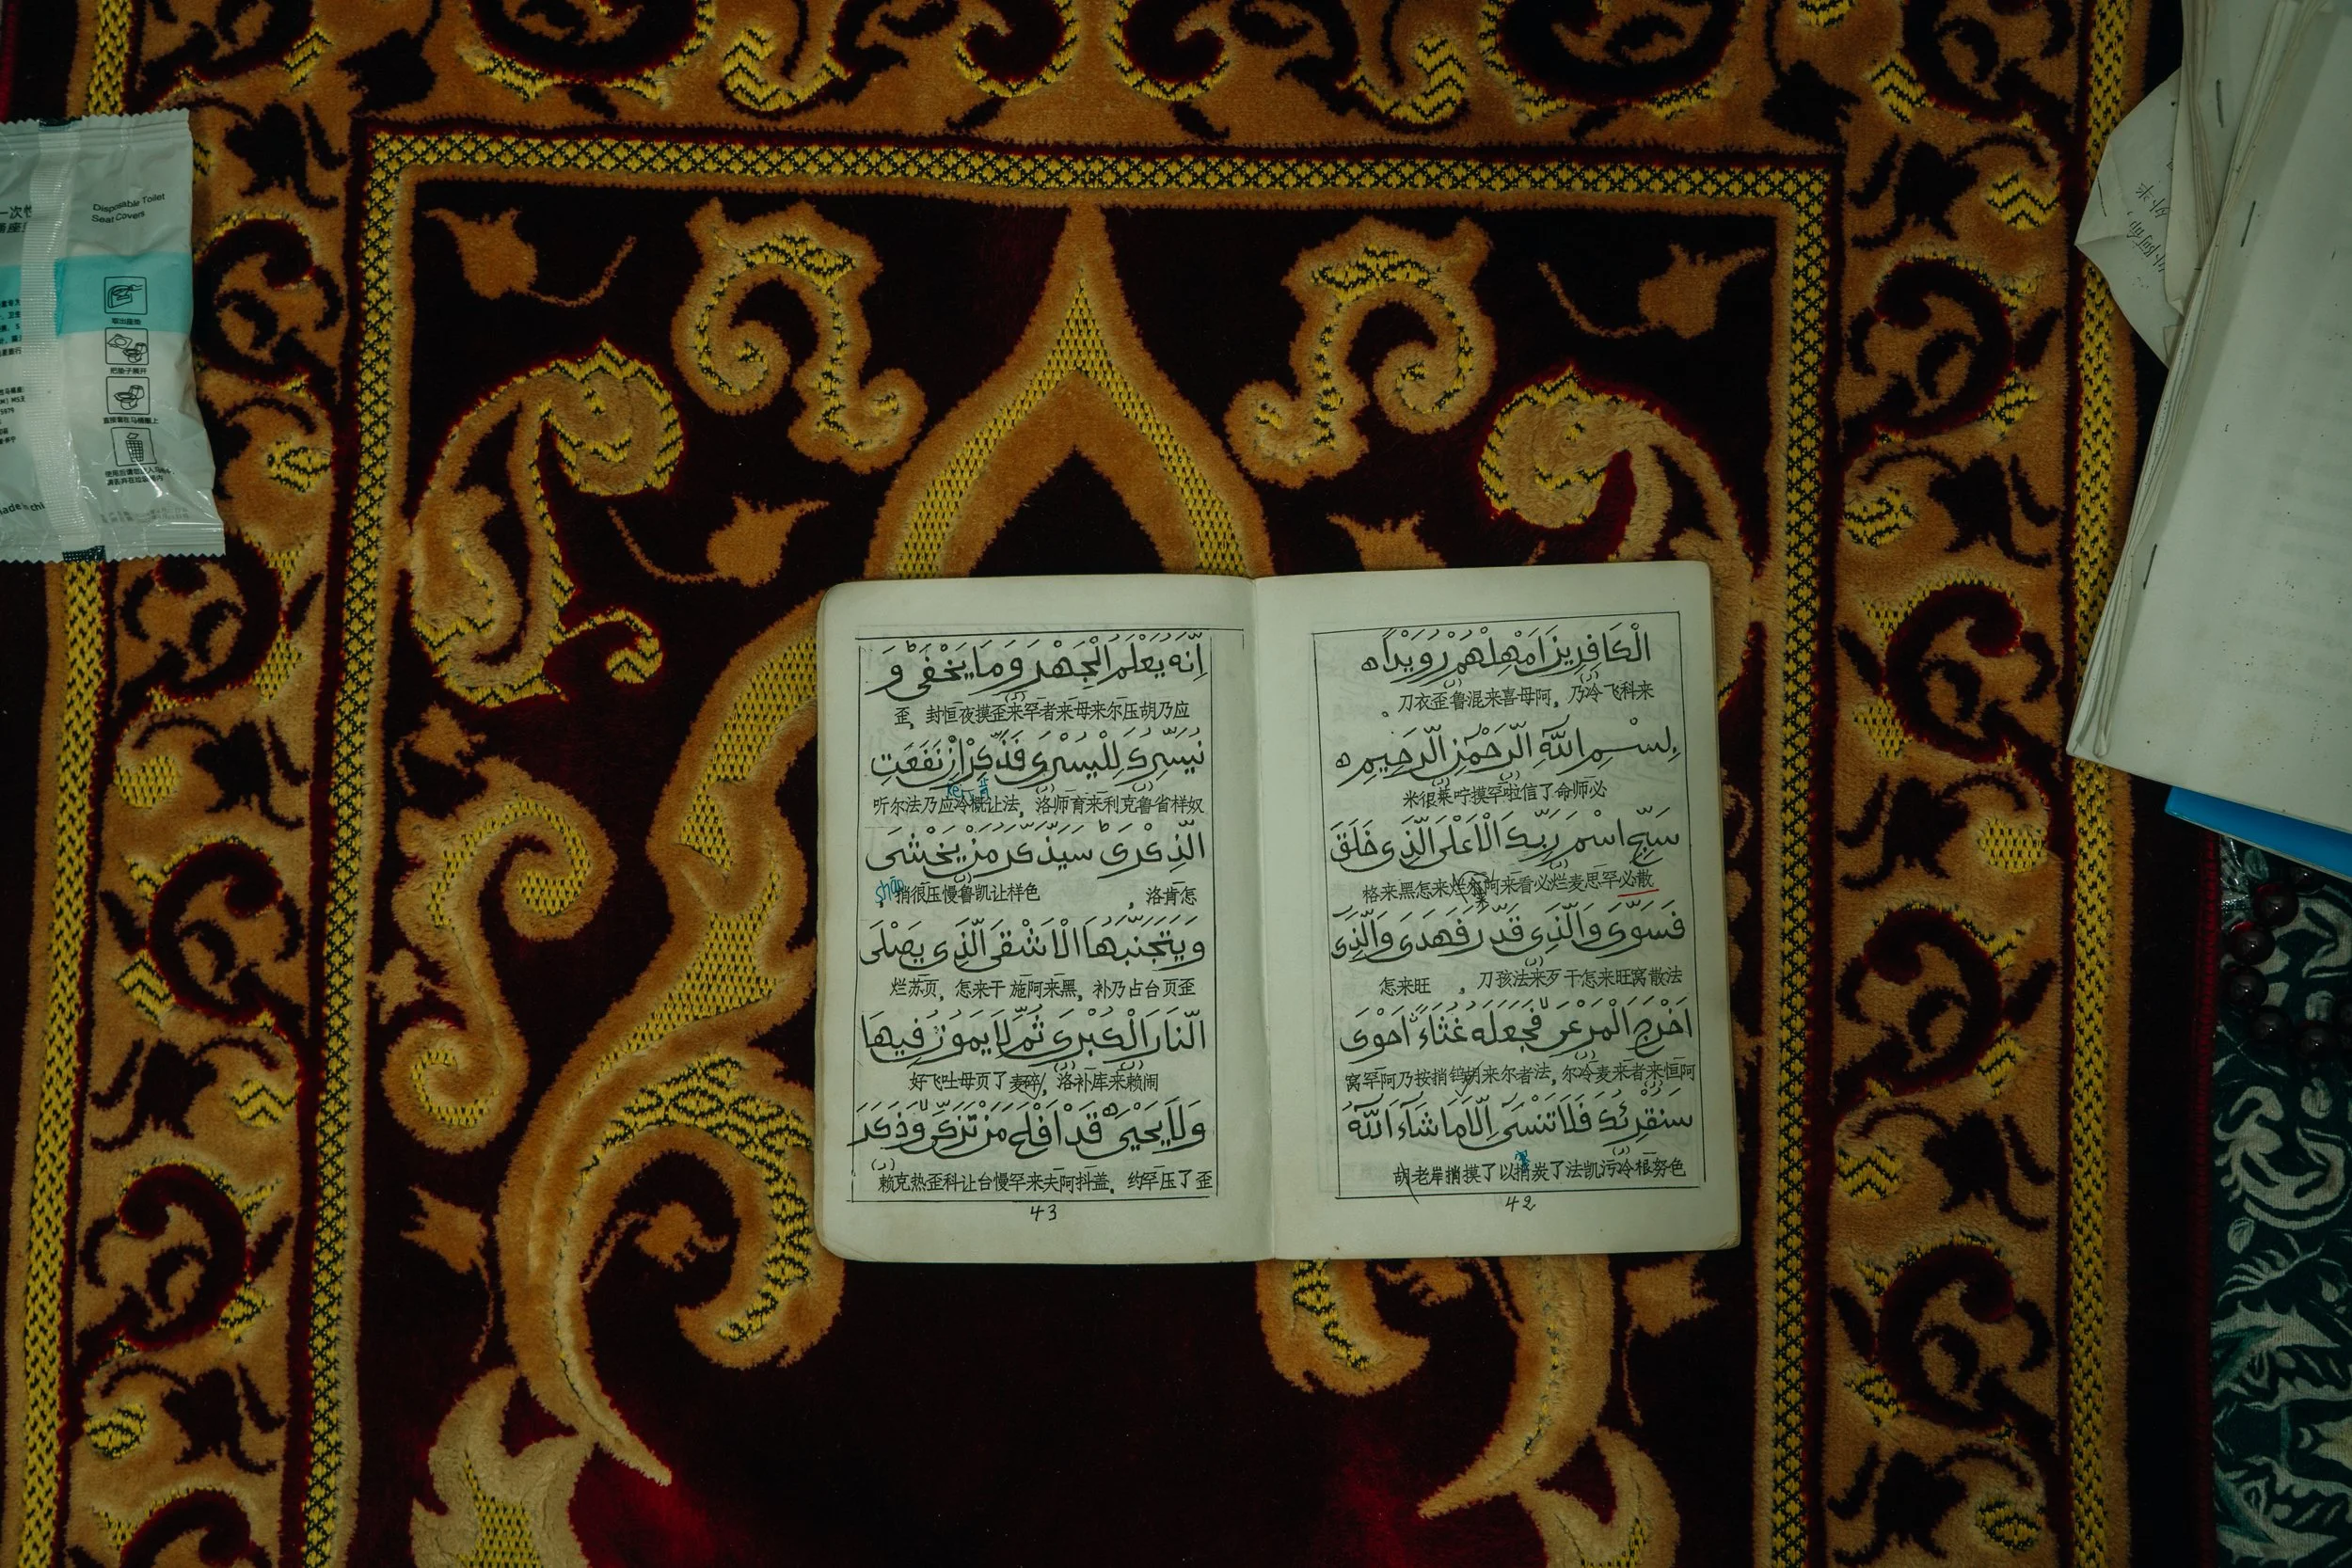 一次性
Disposable Toilet
Seat Covers
取出座垫
把垫子展开
直接套在马桶圈上
الْكَافِرِينَ اَمْهِلْهُمْ رُوَيْدًا ه
来科飞冷乃，阿母喜来混鲁歪衣刀。
بِسْمِ اللّٰهِ الرَّحْمٰنِ الرَّحِيمِ ه
必师命了信啦罕摸咛莱很米
سَبِّحِ اسْمَ رَبِّكَ الْاَعْلَى الَّذِى خَلَقَ
散必罕思麦烂必看来阿尔烂怎来黑来格
فَسَوّٰى وَالَّذِى قَدَّرَ فَهَدٰى وَالَّذِى
法散窝旺来怎干歹来法孩刀，旺来怎
اَخْرَجَ الْمَرْعٰى فَجَعَلَهُ غُثَاءً اَحْوٰى
阿恒来者来麦冷尔，法者尔来胡捎按乃阿罕窝
سَنُقْرِئُكَ فَلَا تَنْسٰى اِلَّا مَا شَاءَ اللّٰهُ
色努根冷污凯法了炭捎以了摸捎岸老胡
42
اِنَّهُ يَعْلَمُ الْجَهْرَ وَمَا يَخْفٰى وَ
应乃胡压尔来母来者罕来歪摸夜恒封，歪
نُيَسِّرُكَ لِلْيُسْرٰى فَذَكِّرْ اِنْ نَفَعَتِ
奴样省鲁克利来育师洛，法让概冷应乃法尔听
الذِّكْرٰى سَيَذَّكَّرُ مَنْ يَخْشٰى
怎肯洛，色样让凯鲁慢压很捎 shāo
وَيَتَجَنَّبُهَا الْاَشْقَى الَّذِى يَصْلَى
歪页台占乃补，黑来阿施干来怎，页苏烂
النَّارَ الْكُبْرٰى ثُمَّ لَا يَمُوتُ فِيهَا
闹赖来库补洛，碎麦了页母吐飞好
وَلَا يَحْيٰى ه قَدْ اَفْلَحَ مَنْ تَزَكّٰى وَذَكَرَ
歪了压罕约，盖抖阿夫来罕慢台让科歪热克赖
43